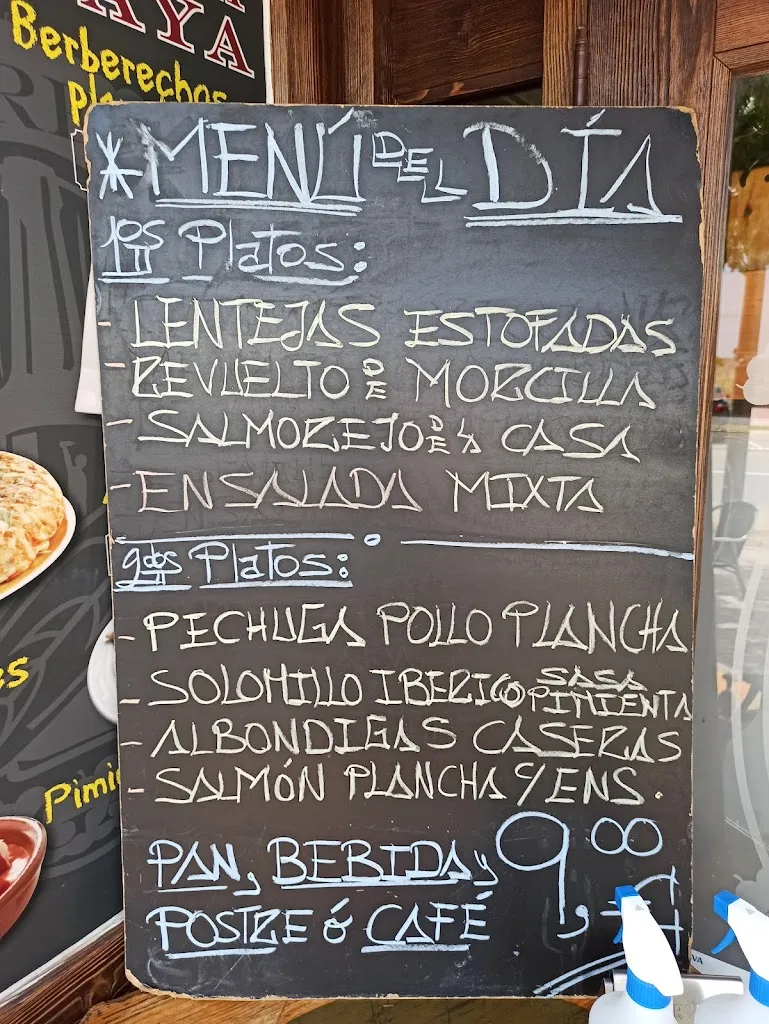 AYA
Berberechos
*MENÚ DEL DÍA
1os Platos:
- LENTEJAS ESTOFADAS
- REVUELTO DE MORCILLA
- SALMOREJO DE LA CASA
- ENSALADA MIXTA
2dos Platos:
- PECHUGA POLLO PLANCHA
- SOLOMILLO IBERICO SASA PIMIENTA
- ALBONDIGAS CASERAS
- SALMÓN PLANCHA C/ENS.
PAN, BEBIDA y
POSTRE ó CAFÉ
9,00 €
Pimi